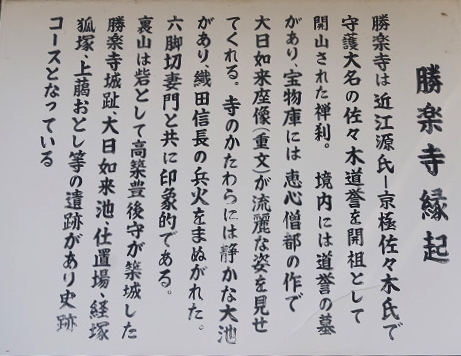 勝楽寺縁起
勝楽寺は近江源氏ー京極佐々木氏で
守護大名の佐々木道誉を開祖として
開山された禅刹。境内には道誉の墓
があり、宝物庫には恵心僧都の作で
大日如来座像(重文)が流麗な姿を見せ
てくれる。寺のかたわらには静かな大池
があり、織田信長の兵火をまぬがれた。
六脚切妻門と共に印象的である。
裏山は砦として高築豊後守が築城した
勝楽寺城趾、大日如来池、仕置場、経塚
狐塚、上﨟おとし等の遺跡があり史跡
コースとなっている